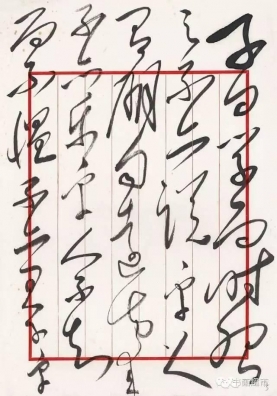 子曰学而时习
之不亦说乎
有朋自远方来
不亦乐乎人不知
而不愠不亦君子乎